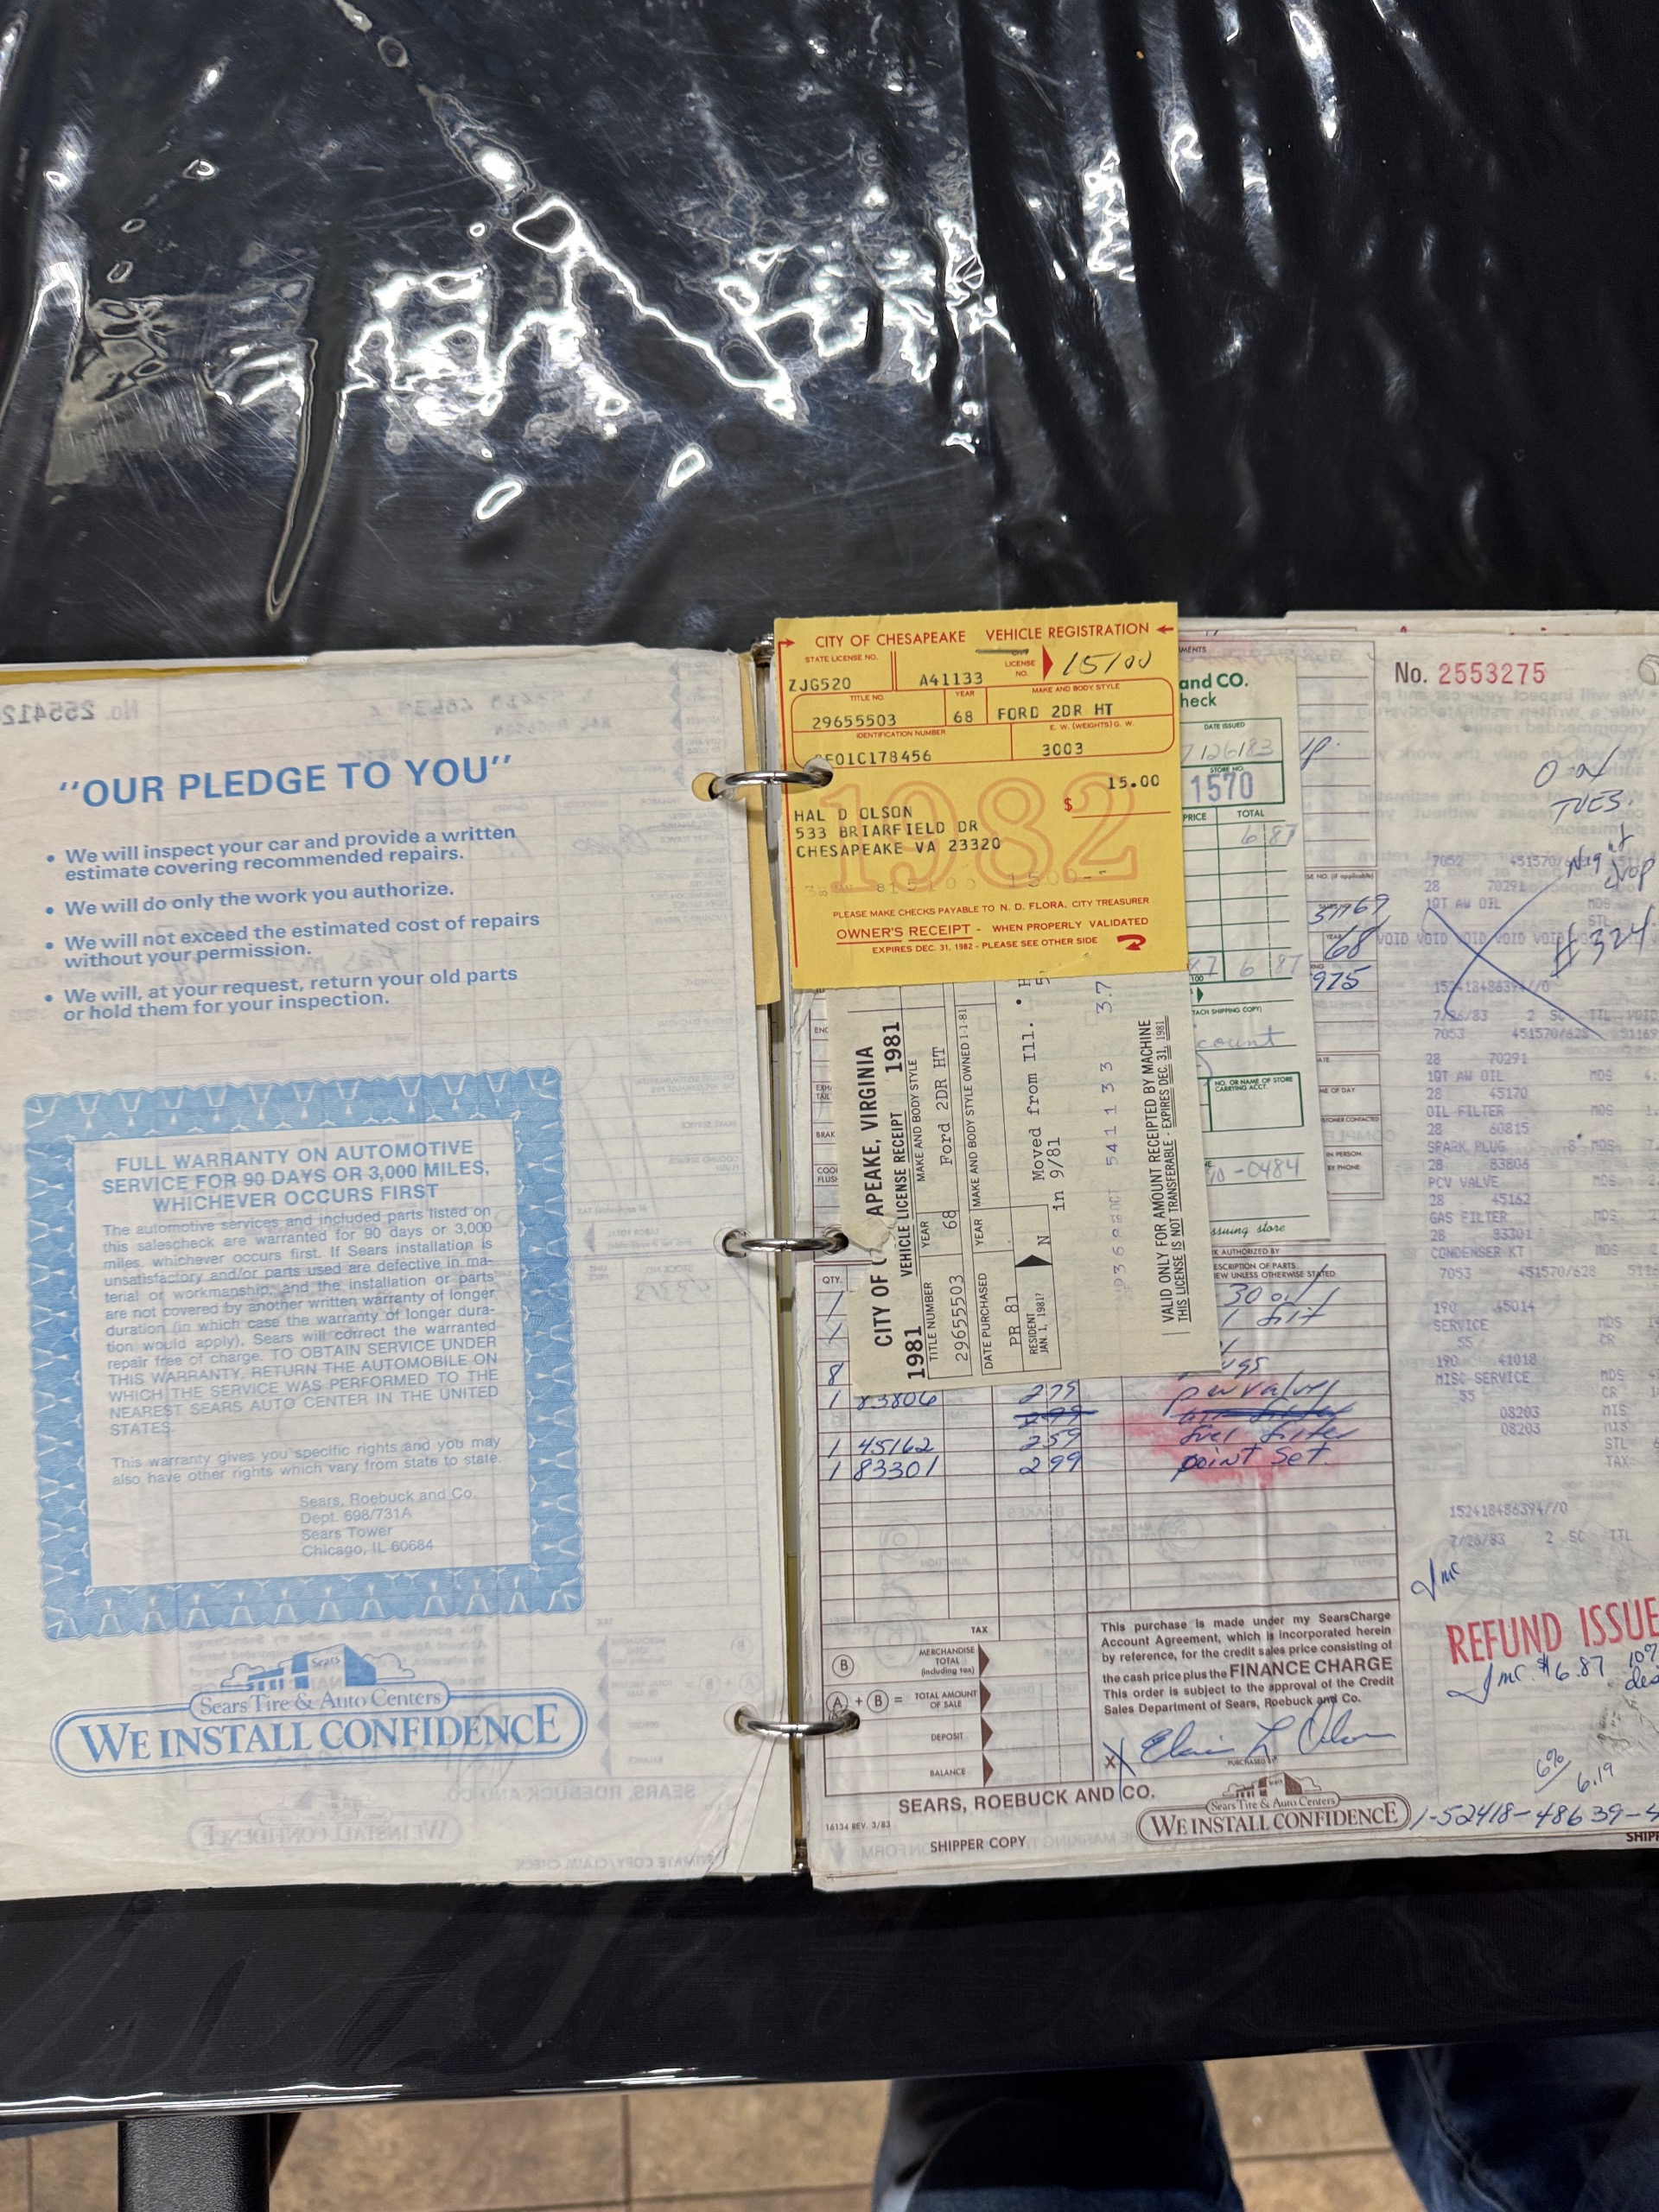 "OUR PLEDGE TO YOU"
• We will inspect your car and provide a written
estimate covering recommended repairs.
• We will do only the work you authorize.
• We will not exceed the estimated cost of repairs
without your permission.
• We will, at your request, return your old parts
or hold them for your inspection.
FULL WARRANTY ON AUTOMOTIVE
SERVICE FOR 90 DAYS OR 3,000 MILES,
WHICHEVER OCCURS FIRST
The automotive services and included parts listed on
this salescheck are warranted for 90 days or 3,000
miles, whichever occurs first. If Sears installation is
unsatisfactory and/or parts used are defective in ma-
terial or workmanship, and the installation or parts
are not covered by another written warranty of longer
duration (in which case the warranty of longer dura-
tion would apply), Sears will correct the warranted
repair free of charge. TO OBTAIN SERVICE UNDER
THIS WARRANTY, RETURN THE AUTOMOBILE ON
WHICH THE SERVICE WAS PERFORMED TO THE
NEAREST SEARS AUTO CENTER IN THE UNITED
STATES.
This warranty gives you specific rights and you may
also have other rights which vary from state to state.
Sears, Roebuck and Co.
Dept. 698/731A
Sears Tower
Chicago, IL 60684
Sears
Sears Tire & Auto Centers
WE INSTALL CONFIDENCE
CITY OF CHESAPEAKE VEHICLE REGISTRATION
STATE LICENSE NO.
LICENSE NO.
15100
ZJG520 A41133
TITLE NO. YEAR MAKE AND BODY STYLE
29655503 68 FORD 2DR HT
IDENTIFICATION NUMBER E. W. (WEIGHTS) G. W.
F01C178456 3003
15.00
$
1982
HAL D OLSON
533 BRIARFIELD DR
CHESAPEAKE VA 23320
PLEASE MAKE CHECKS PAYABLE TO N. D. FLORA, CITY TREASURER
OWNER'S RECEIPT - WHEN PROPERLY VALIDATED
EXPIRES DEC. 31, 1982 - PLEASE SEE OTHER SIDE
CITY OF APEAKE, VIRGINIA
1981 VEHICLE LICENSE RECEIPT 1981
TITLE NUMBER YEAR MAKE AND BODY STYLE
29655503 68 Ford 2DR HT
DATE PURCHASED YEAR MAKE AND BODY STYLE OWNED 1-1-81
PR 81
RESIDENT
JAN. 1, 1981?
N
Moved from Ill.
in 9/81
3.7
541133
VALID ONLY FOR AMOUNT RECEIPTED BY MACHINE
THIS LICENSE IS NOT TRANSFERABLE - EXPIRES DEC. 31, 1981
and CO.
heck
DATE ISSUED
7/26/83
STORE NO.
1570
PRICE TOTAL
6 87
6 87
TACH SHIPPING COPY)
count
NO. OR NAME OF STORE
CARRYING ACCT.
-0484
issuing store
68
975
No. 2553275
ON
TUES.
Night
drop
#324
7052
28 70291
1QT AW OIL MDS
STL
VOID VOID VOID VOID VOID
7/26/83 2 SC TTL VOID
7053 451570/628
28 70291
1QT AW OIL MDS
28 45170
OIL FILTER MDS
28 60815
SPARK PLUG 8 MDS
28 83806
PCV VALVE MDS
28 45162
GAS FILTER MDS
28 83301
CONDENSER KT MDS
7053 451570/628
190 45014
SERVICE MDS
55 CR
190 41018
MISC SERVICE MDS
55 CR
08203 MIS
08203 MIS
STL
TAX
152418486394//0
7/26/83 2 SC TTL
QTY.
AUTHORIZED BY
ESCRIPTION OF PARTS
EW UNLESS OTHERWISE STATED
1 30 oil
1 filt
8 ugs
1 83806 279 pcv valve
1 45162 259 fuel filter
1 83301 299 point set.
TAX
B MERCHANDISE
TOTAL
(including tax)
A + B = TOTAL AMOUNT
OF SALE
DEPOSIT
BALANCE
This purchase is made under my SearsCharge
Account Agreement, which is incorporated herein
by reference, for the credit sales price consisting of
the cash price plus the FINANCE CHARGE
This order is subject to the approval of the Credit
Sales Department of Sears, Roebuck and Co.
X
PURCHASED BY
SEARS, ROEBUCK AND CO.
16134 REV. 3/83
SHIPPER COPY
Sears Tire & Auto Centers
WE INSTALL CONFIDENCE
REFUND ISSUE
$6.87 10%
6%
6.19
1-52418-48639-4
SHIPP